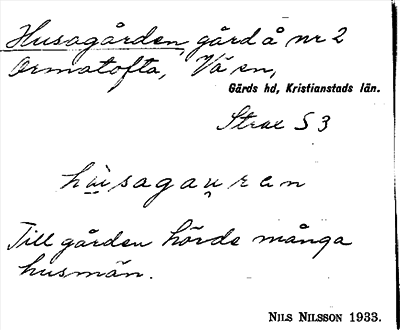 Husagården, gård å nr 2
Ormatofta, Vä sn,
Gärds hd, Kristianstads län.
Strae S 3
hu̯sagau̯ran
Till gården hörde många
husmän.
NILS NILSSON 1933.